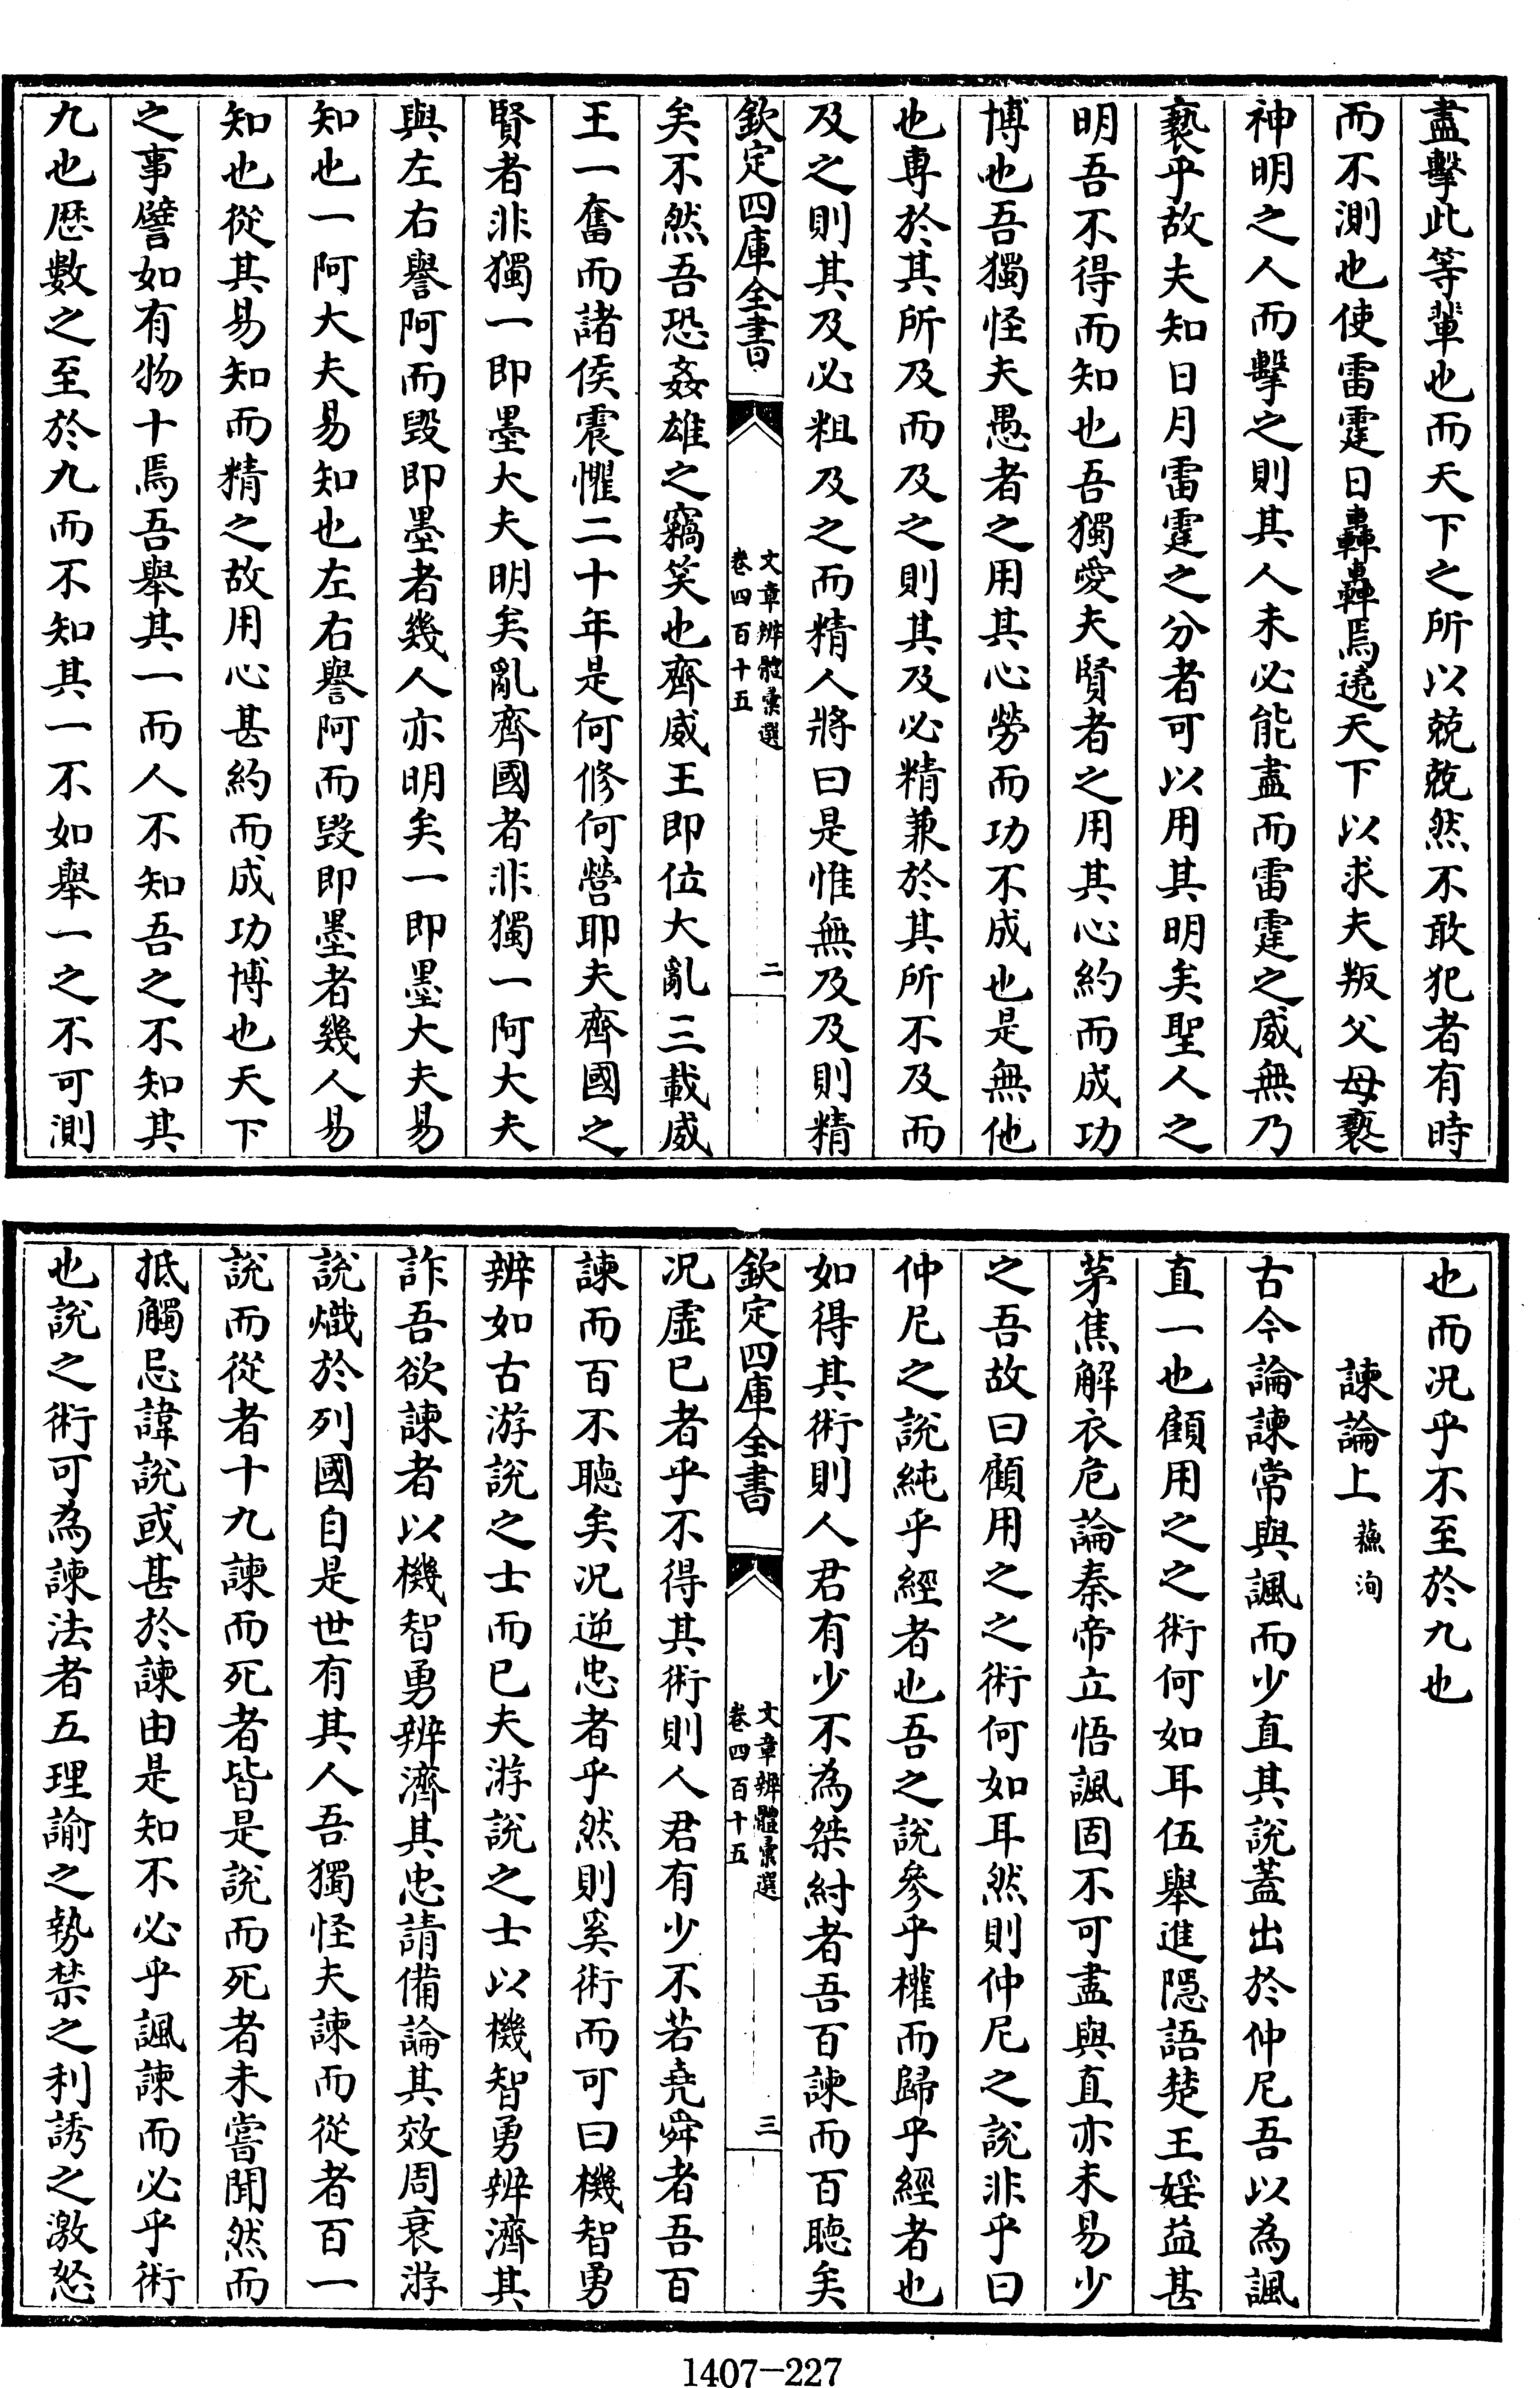 盡擊此等輩也而天下之所以兢兢然不敢犯者有時
而不測也使雷霆日轟轟焉遶天下以求夫叛父母褻
神明之人而擊之則其人未必能盡而雷霆之威無乃
褻乎故夫知日月雷霆之分者可以用其明矣聖人之
明吾不得而知也吾獨愛夫賢者之用其心約而成功
博也吾獨怪夫愚者之用其心勞而功不成也是無他
也專於其所及而及之則其及必精兼於其所不及而
及之則其及必粗及之而精人將曰是惟無及及則精
欽定四庫全書
文章辨體彙選
卷四百十五
二
矣不然吾恐姦雄之竊笑也齊威王即位大亂三載威
王一奮而諸侯震懼二十年是何修何營耶夫齊國之
賢者非獨一即墨大夫明矣亂齊國者非獨一阿大夫
與左右譽阿而毀即墨者幾人亦明矣一即墨大夫易
知也一阿大夫易知也左右譽阿而毀即墨者幾人易
知也從其易知而精之故用心甚約而成功博也天下
之事譬如有物十焉吾舉其一而人不知吾之不知其
九也歷數之至於九而不知其一不如舉一之不可測
也而况乎不至於九也
諫論上 蘇洵
古今論諫常與諷而少直其說蓋出於仲尼吾以為諷
直一也顧用之之術何如耳伍舉進隱語楚王婬益甚
茅焦解衣危論秦帝立悟諷固不可盡與直亦未易少
之吾故曰顧用之之術何如耳然則仲尼之說非乎曰
仲尼之說純乎經者也吾之說參乎權而歸乎經者也
如得其術則人君有少不為桀紂者吾百諫而百聽矣
欽定四庫全書
文章辨體彙選
卷四百十五
三
况虛已者乎不得其術則人君有少不若堯舜者吾百
諫而百不聽矣况逆忠者乎然則奚術而可曰機智勇
辨如古游說之士而已夫游說之士以機智勇辨濟其
詐吾欲諫者以機智勇辨濟其忠請備論其效周衰游
說熾於列國自是世有其人吾獨怪夫諫而從者百一
說而從者十九諫而死者皆是說而死者未嘗聞然而
抵觸忌諱說或甚於諫由是知不必乎諷諫而必乎術
也說之術可為諫法者五理諭之勢禁之利誘之激怒
1407-227